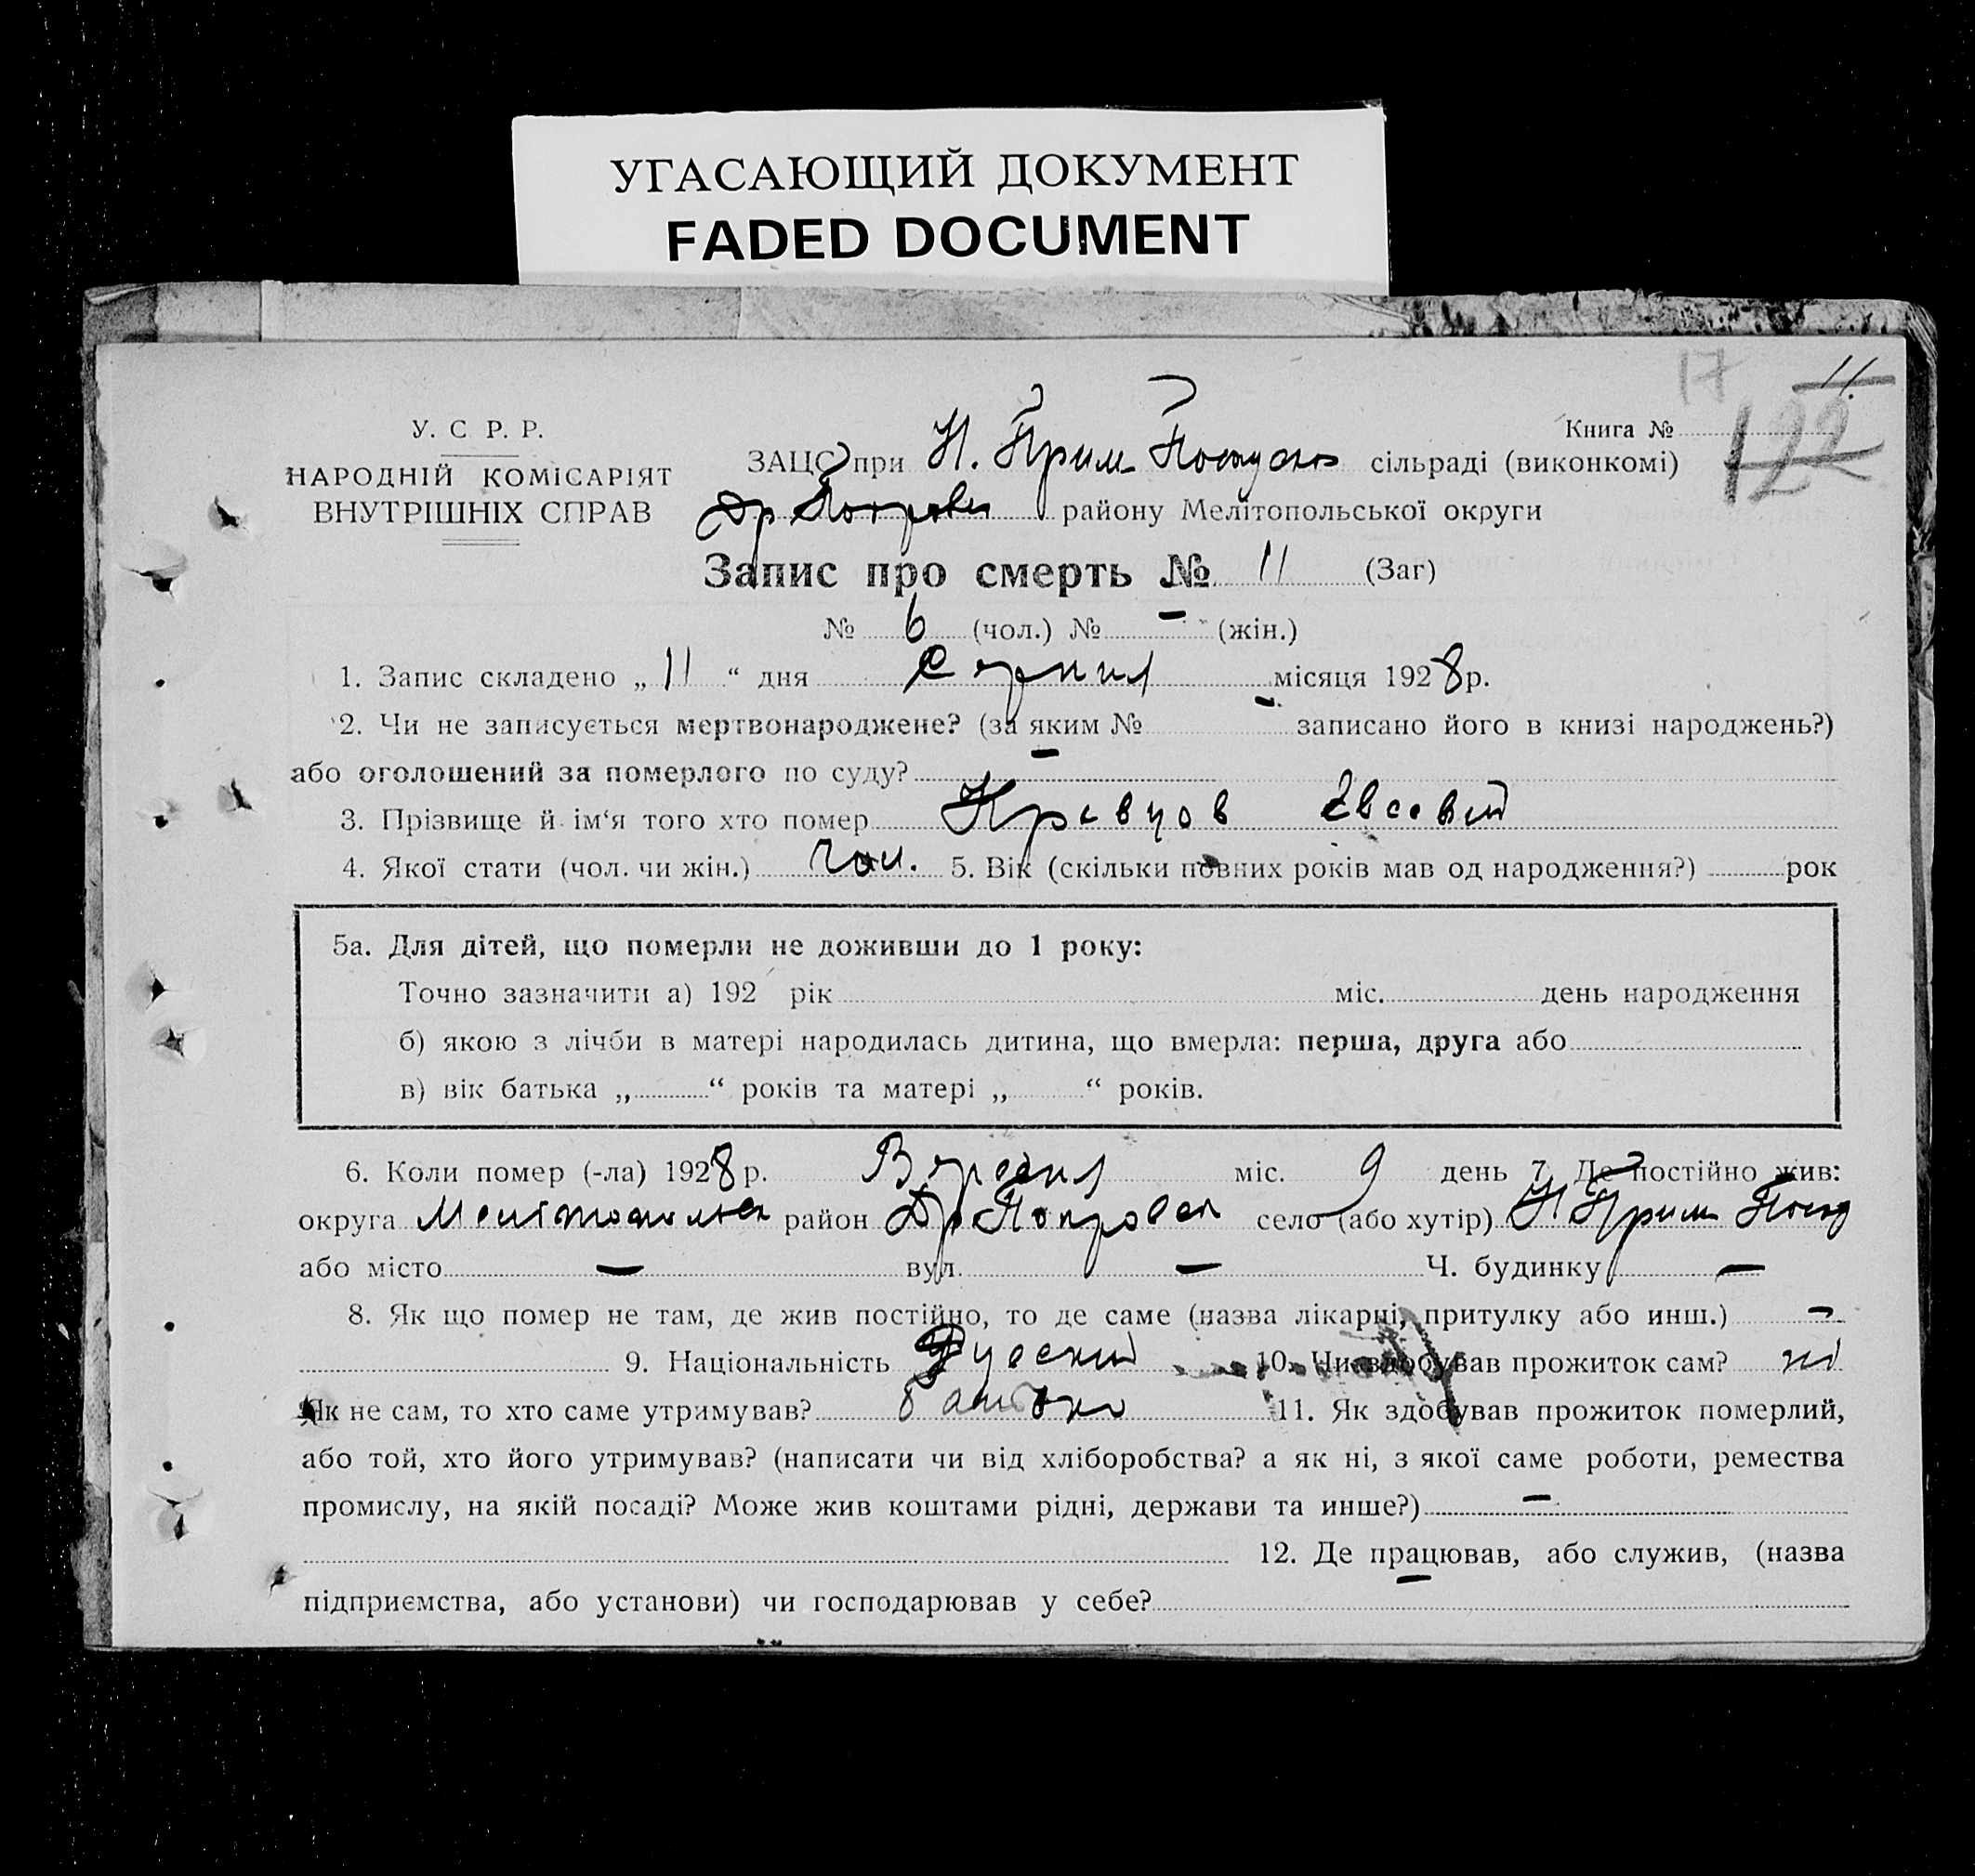 УГАСАЮЩИЙ ДОКУМЕНТ
FADED DOCUMENT
17 11.
122
У. С Р. Р.
НАРОДНІЙ КОМІСАРІЯТ
ВНУТРІШНІХ СПРАВ
Книга №
ЗАЦС при Н. Прим сільраді (виконкомі)
району Мелітопольської округи
Запис про смерть № 11 (Заг)
№ 6 (чол.) № – (жін.)
1. Запис складено „ 11 “ дня Серпня місяця 1928 р.
2. Чи не записується мертвонароджене? (за яким № – записано його в книзі народжень?)
або оголошений за померлого по суду? –
3. Прізвище й ім‘я того хто помер Кравцов Евсевий
4. Якої стати (чол. чи жін.) чол. 5. Вік (скільки повних років мав од народження?) рок
5а. Для дітей, що померли не доживши до 1 року:
Точно зазначити а) 192 рік міс. день народження
б) якою з лічби в матері народилась дитина, що вмерла: перша, друга або
в) вік батька „ “ років та матері „ “ років.
6. Коли помер (-ла) 1928 р. Вересня міс. 9 день 7. Де постійно жив:
округа район село (або хутір) Н Прим Посад
або місто – вул. – Ч. будинку –
8. Як що помер не там, де жив постійно, то де саме (назва лікарні, притулку або инш.) –
9. Національність Русский 10. Чи здобував прожиток сам? ні
Як не сам, то хто саме утримував? батько 11. Як здобував прожиток померлий,
або той, хто його утримував? (написати чи від хліборобства? а як ні, з якої саме роботи, ремества
промислу, на якій посаді? Може жив коштами рідні, держави та инше?) –
12. Де працював, або служив, (назва
підприємства, або установи) чи господарював у себе? –